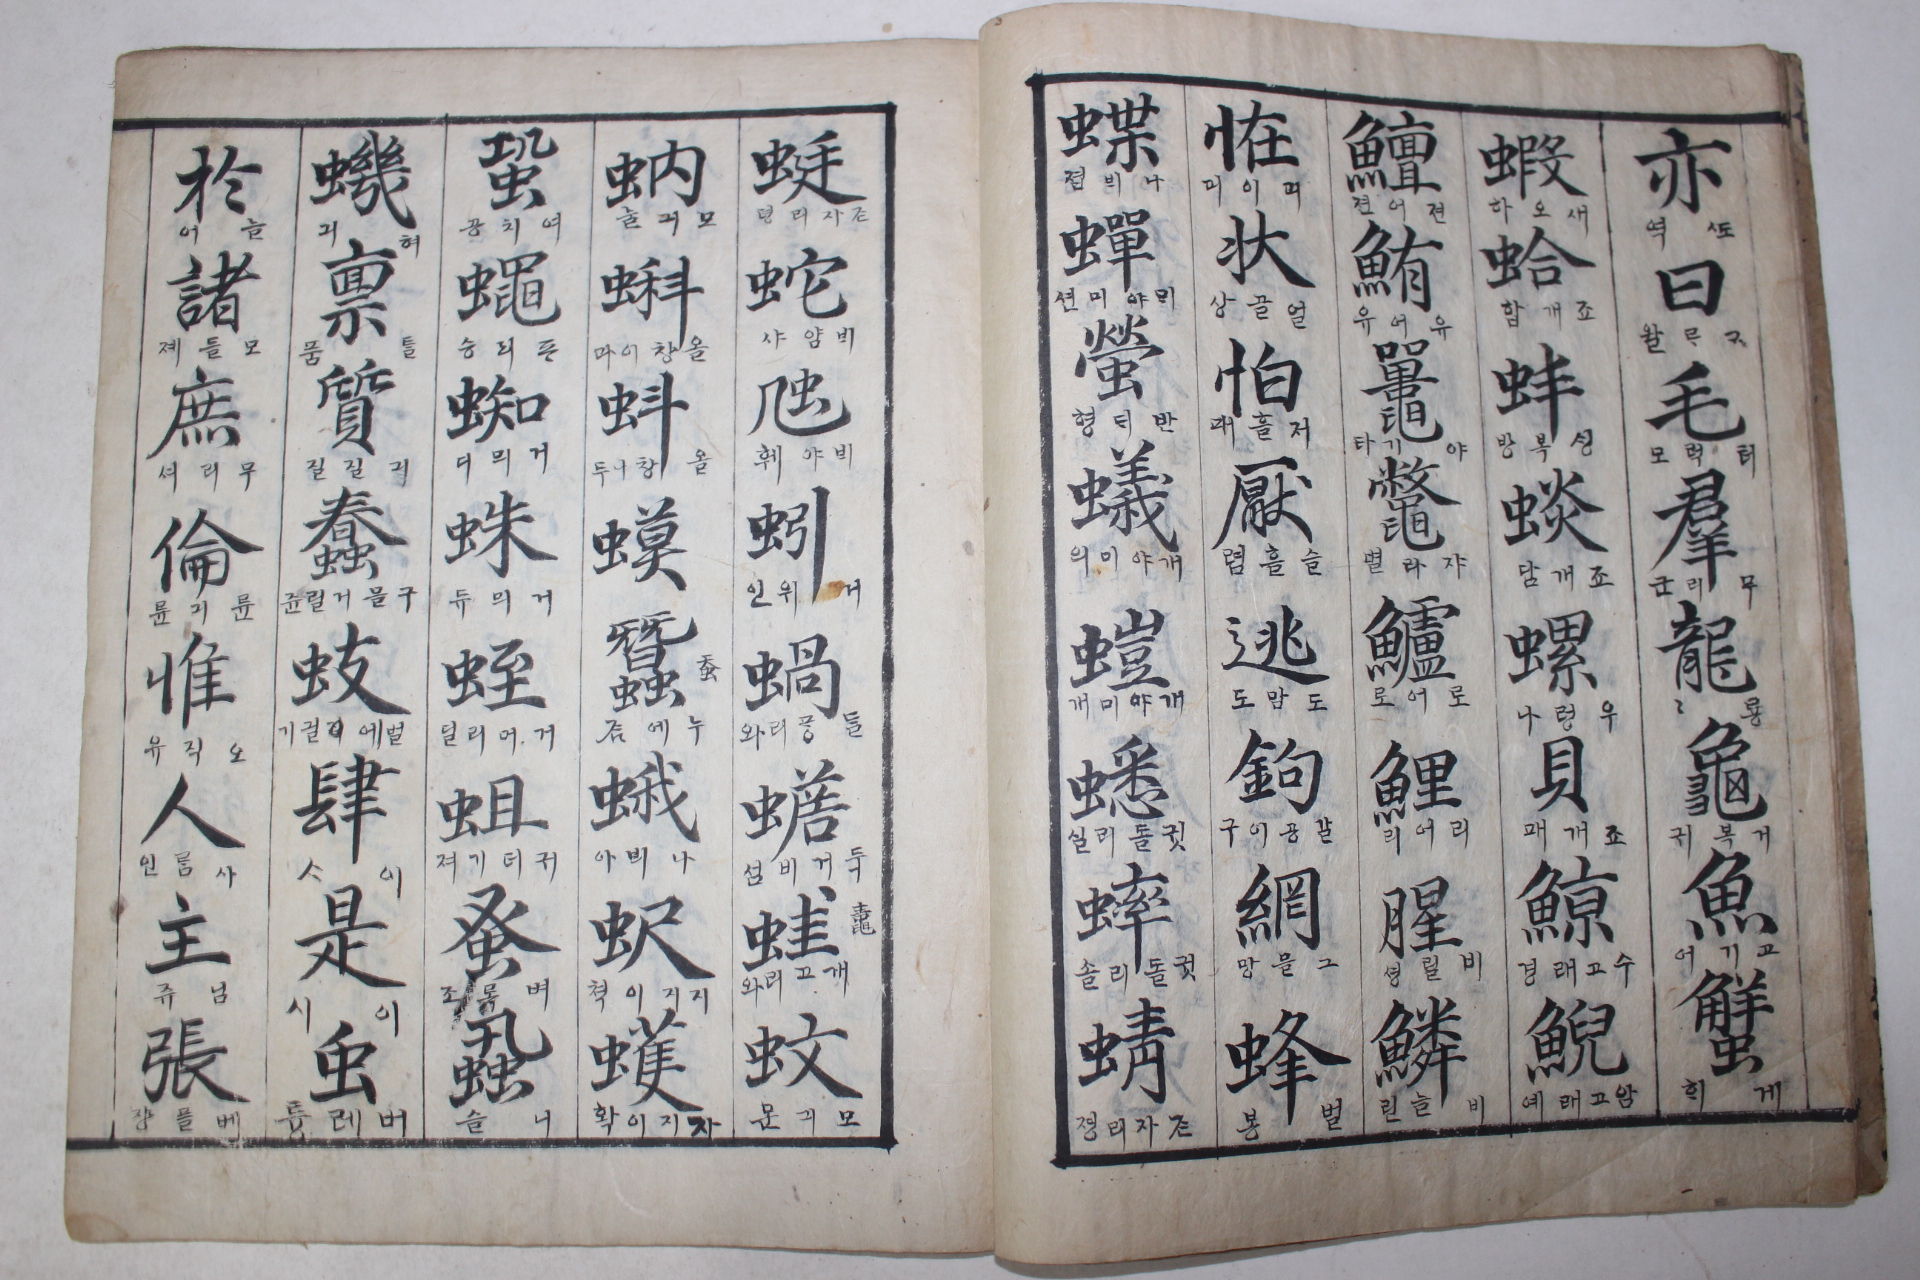 亦 ᄯᅩ 역 曰 왈 毛 터럭 모 羣 무리 군 龍 룡 龜 거복 귀 魚 고기 어 蠏 게 희
蝦 새오 하 蛤 죠개 합 蚌 싱복 방 䗊 죠개 담 螺 우렁 나 貝 죠개 패 鯨 수고래 경 鯢 암고래 예
鱣 젼어 젼 鮪 유어 유 鼉 야기 타 鼈 쟈라 별 鱸 로어 로 鯉 리어 리 腥 비릴 셩 鱗 비늘 린
恠 状 얼골 상 怕 저흘 패 厭 슬흘 렴 逃 도망 도 鉤 갈공이 구 網 그믈 망 蜂 벌 봉
蝶 나븨 졉 蟬 ᄆᆡ야미 션 螢 반듸 형 蟻 개야미 의 螘 개야미 개 蟋 귓돌리 실 蟀 귓돌리 솔 蜻 존자리 졍
蜓 존자리 뎐 蛇 비암 샤 虺 비야 훼 蚓 거위 인 蝸 들퐁리 와 蟾 두거비 섬 蛙 鼃 개고리 와 蚊 모긔 문
蚋 모긔 蝌 올창이 과 蚪 올창이 두 蟆 蠶 蚕 누에 줌 蛾 나븨 아 蚇 지지이 쳑 蠖 자지이 확
蛩 여치 공 蠅 프리 승 蜘 거믜 디 蛛 거믜 듀 蛭 거머리 딜 蛆 귀더기 져 蚤 벼록 조 蝨 니 슬
蟣 혀 긔 稟 틀 품 質 긔질 질 蠢 구믈거릴 쥰 蚑 벌에 기 肆 이 是 이 시 虫 버레 튱
於 늘 어 諸 모들 졔 庶 무리 셔 倫 륜긔 륜 惟 오직 유 人 사름 인 主 님 쥬 張 베플 쟝